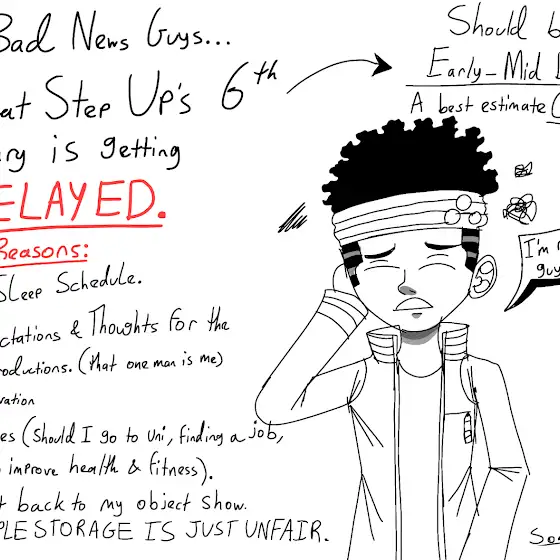 Bad News Guys...
Step Up's 6th
is getting
ELAYED.
Reasons:
Sleep Schedule.
& Thoughts for the
(that one man is me)
(Should I go to Uni, finding a job,
improve health & fitness).
back to my object show.
STORAGE IS JUST UNFAIR.
Should b
Early-Mid
A best estimate
I'm
guy